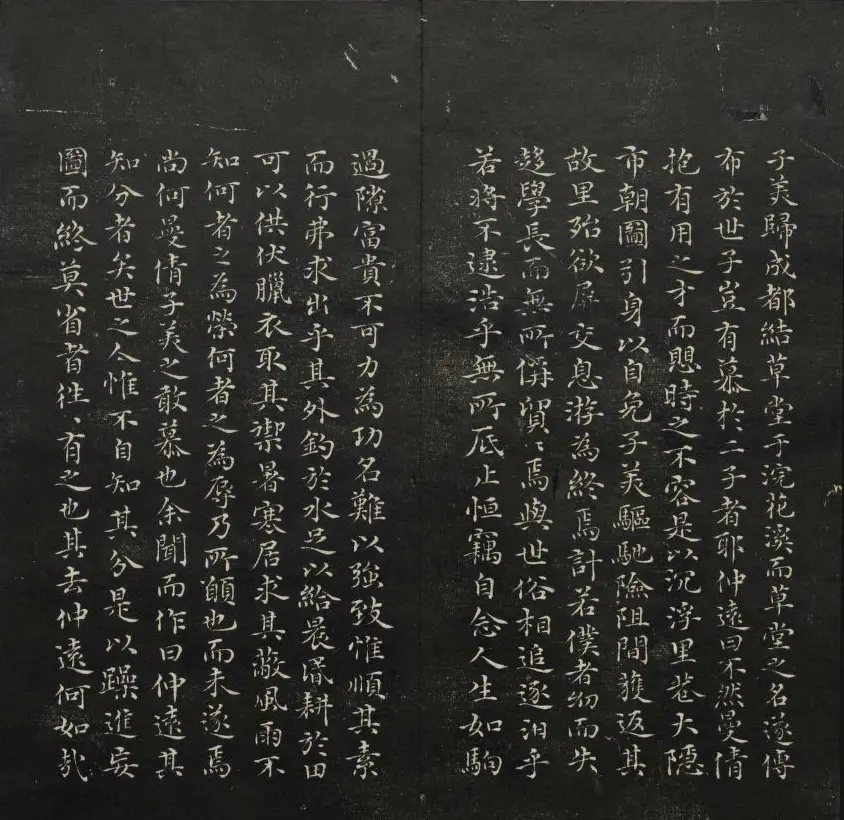 子美歸成都結草堂于浣花溪而草堂之名遂傳
布於世子豈有慕於二子者耶仲遠曰不然曼倩
抱有用之才而思時之不容是以沉浮里巷大隱
市朝圖引身以自免子美驅馳險阻間獲返其
故里殆欲屏交息游為終焉計若僕者幼而失
趍學長而無所備貿貿焉與世俗相追逐汨乎
若將不逮浩乎無所厎止恒竊自念人生如駒
過隙富貴不可力為功名難以強致惟順其素
而行弗求出乎其外釣於水足以給晨昏耕於田
可以供伏臘衣取其禦暑寒居求其蔽風雨不
知何者之為榮何者之為辱乃所願也而未遂焉
尚何曼倩子美之敢慕也余聞而作曰仲遠其
知分者矣世之人惟不自知其分是以躁進妄
圖而終莫省者往、有之也其去仲遠何如哉